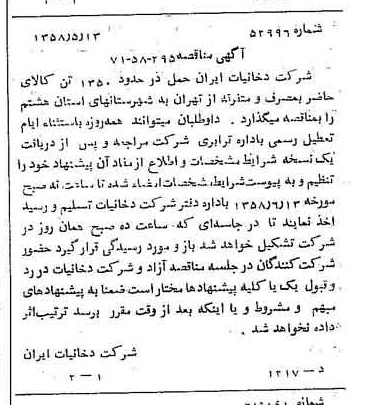 شماره ۵۲۹۹۶ ۱۳۵۸/۵/۱۳
آگهی مناقصه ۲۹۵-۵۸-۷۱
شرکت دخانیات ایران حمل در حدود ۱۳۵۰ تن کالای
حاضر بمصرف و متفرقه از تهران به شهرستانهای استان هشتم
را بمناقصه میگذارد . داوطلبان میتوانند همه‌روزه باستثناء ایام
تعطیل رسمی باداره ترابری شرکت مراجعه و پس از دریافت
یک نسخه شرایط مشخصات و اطلاع از مفاد آن پیشنهاد خود را
تنظیم و به پیوست شرایط مشخصات امضاء شده تا ساعت نه صبح
مورخه ۱۳۵۸/۶/۱۳ باداره دفتر شرکت دخانیات تسلیم و رسید
اخذ نمایند تا در جلسه‌ای که ساعت ده صبح همان روز در
شرکت تشکیل خواهد شد باز و مورد رسیدگی قرار گیرد حضور
شرکت‌کنندگان در جلسه مناقصه آزاد و شرکت دخانیات در رد
و قبول یک یا کلیه پیشنهادها مختار است ضمنا به پیشنهادهای
مبهم و مشروط و یا اینکه بعد از وقت مقرر برسد ترتیب‌اثر
داده نخواهد شد .
شرکت دخانیات ایران
د — ۱۲۱۷ ۲ — ۱
شماره